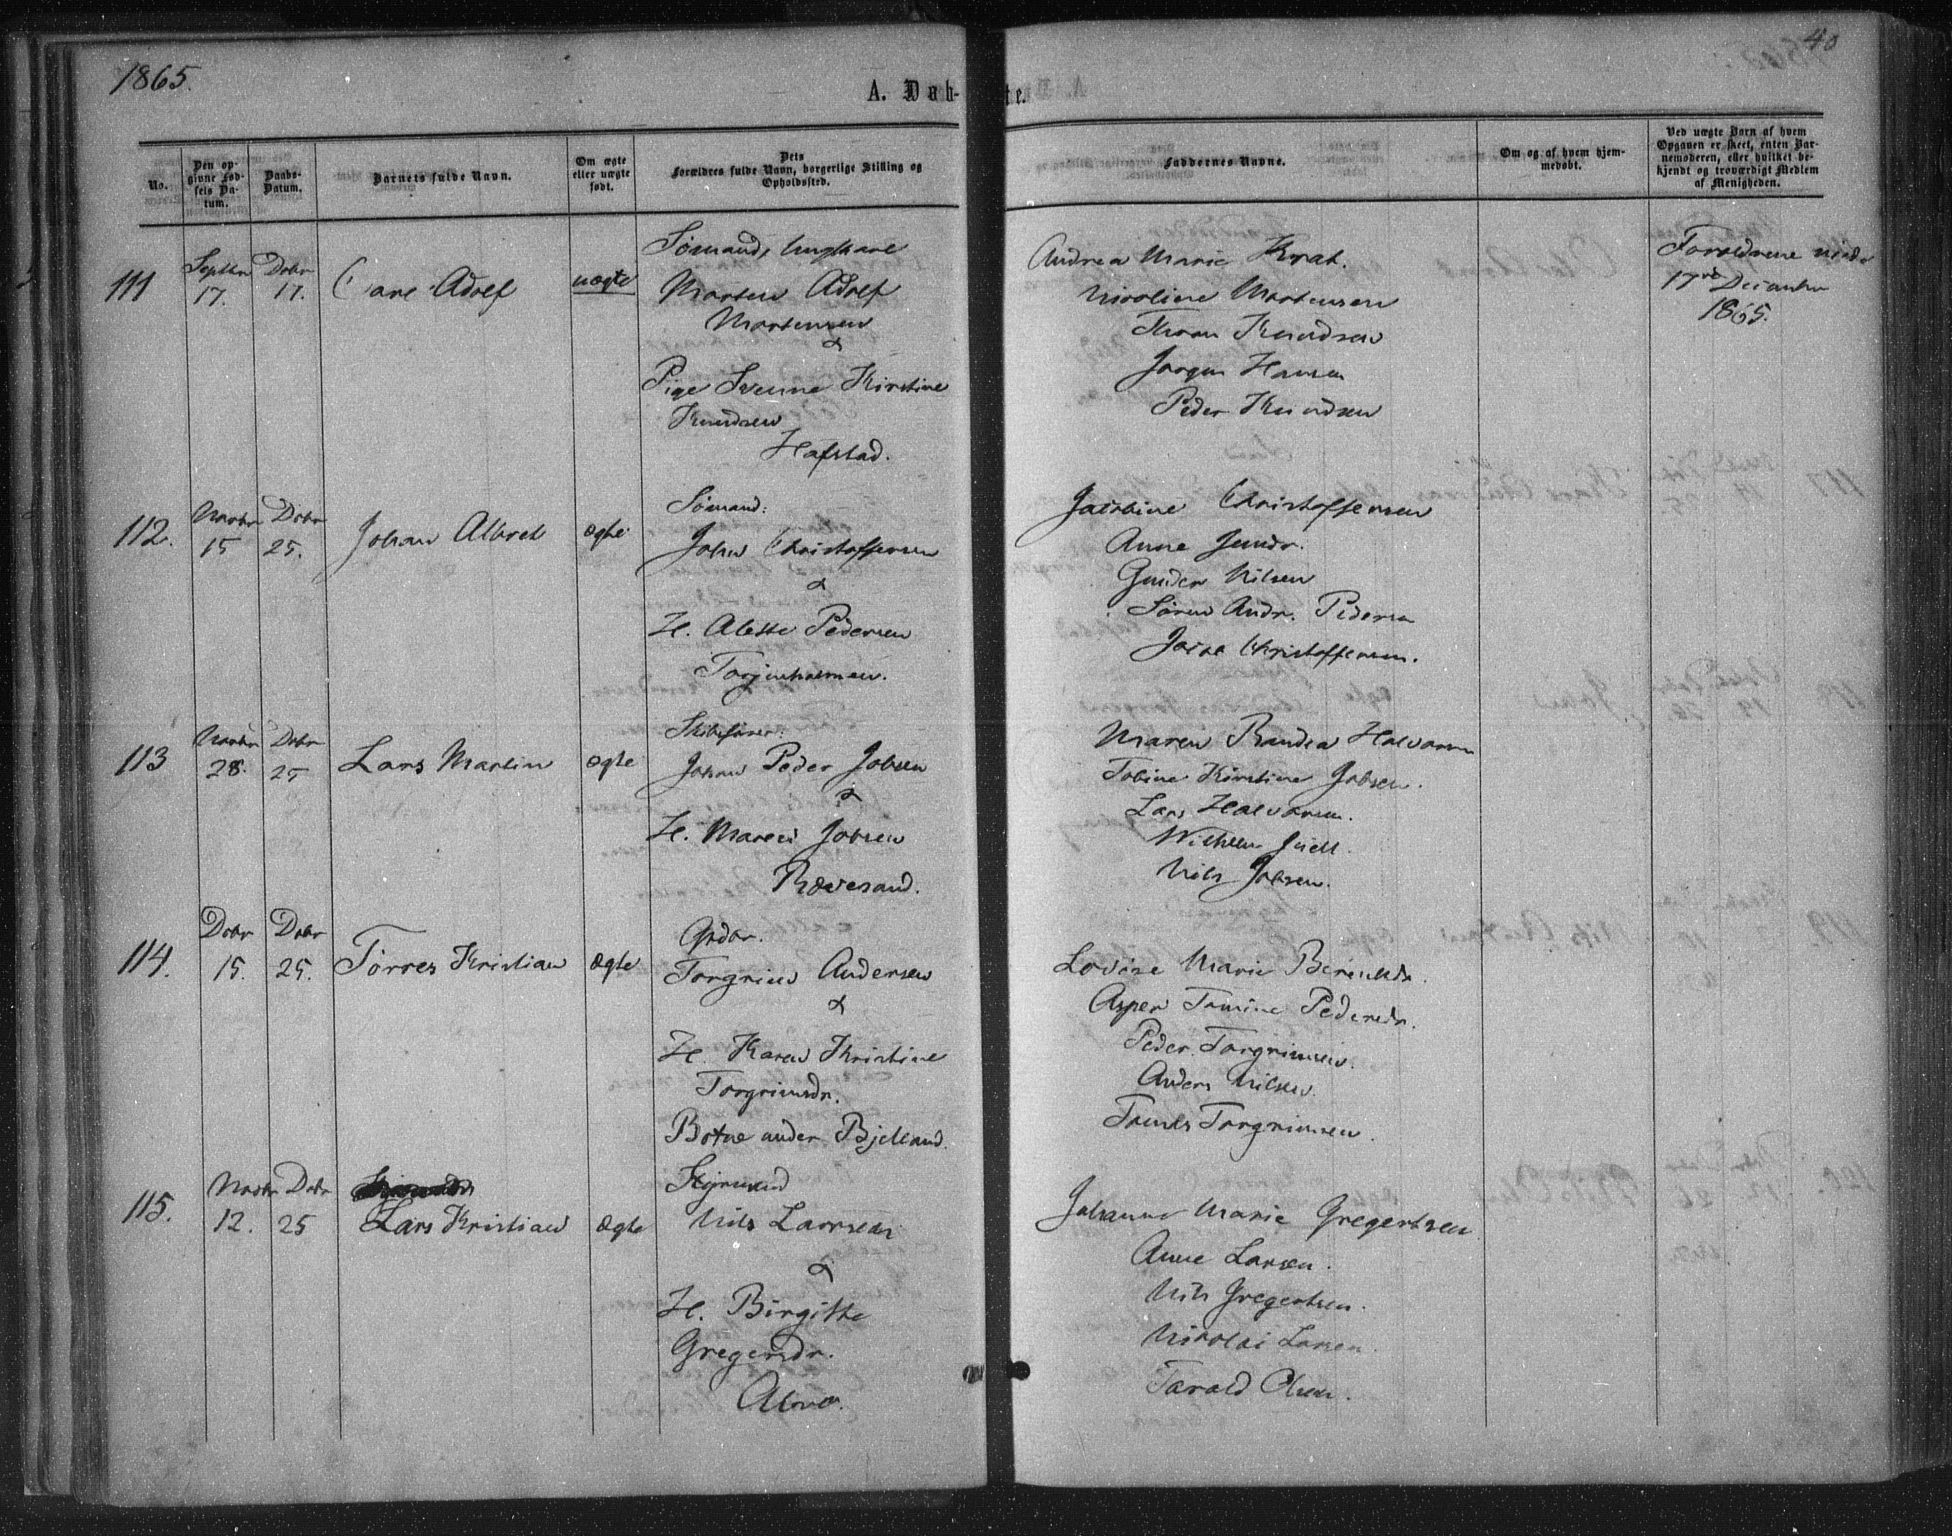 1865.
40
A. Døb-
te.
No.
Den opgivne Fødsels Datum.
Daabs-Datum.
Barnets fulde Navn.
Om ægte eller uægte født.
Dets Forældres fulde Navn, borgerlige Stilling og Opholdssted.
Faddernes Navne.
Om og af hvem hjemmedøbt.
Ved uægte Barn af hvem Opgaven er skeet, enten Barnemoderen, eller hvilket bekjendt og troværdigt Medlem af Menigheden.
111
Septbr 17.
Debr 17.
Carl Adolf
uægte
Sømand, Ungkarl
Morten Adolf
Mortensen
&
Pige Svenne Kirstine
Knudsen
Hafstad.
Andrea Marie Krat.
Nicoline Mortensen
Thron Knudsen
Jørgen Hansen
Peder Knudsen
Forældrene
17de December
1865.
112.
Novbr 15
Debr 25.
Johan Albret
ægte
Sømand:
John Christoffersen
&
H. Alette Pedersen
Torjusholmen.
Jacobine Christoffersen
Anne Gundr.
Gunder Nilsen
Søren Andr. Pedersen
Jacob Christoffersen.
113
Novbr 28.
Debr 25
Lars Martin
ægte
Skibsfører:
Johan Peder Jobsen
&
H. Maren Jobsen
Rævesand.
Maren Randea Halvorsen
Tobine Kirstine Jobsen.
Lars Halvorsen.
Wilhelm Juell.
Nils Jobsen.
114.
Debr 15.
Debr 25.
Tørres Kristian
ægte
Grdbr.
Torgrim Andersen
&
H. Karen Kristine
Torgrimsdr.
Botne under Bjelland.
Lovise Marie Berentsdr.
Asper Tomine Pedersdr.
Peder Torgrimsen.
Anders Nilsen.
Tønnes Torgrimsen.
115.
Novbr 12.
Debr 25
Lars Kristian
ægte
Styrmand
Nils Larrsen
&
H. Birgitte
Gregersdr.
Alvø.
Johanne Marie Gregertsen
Anne Larsen.
Nils Gregertsen.
Nikolai Larsen.
Tarald Olsen.